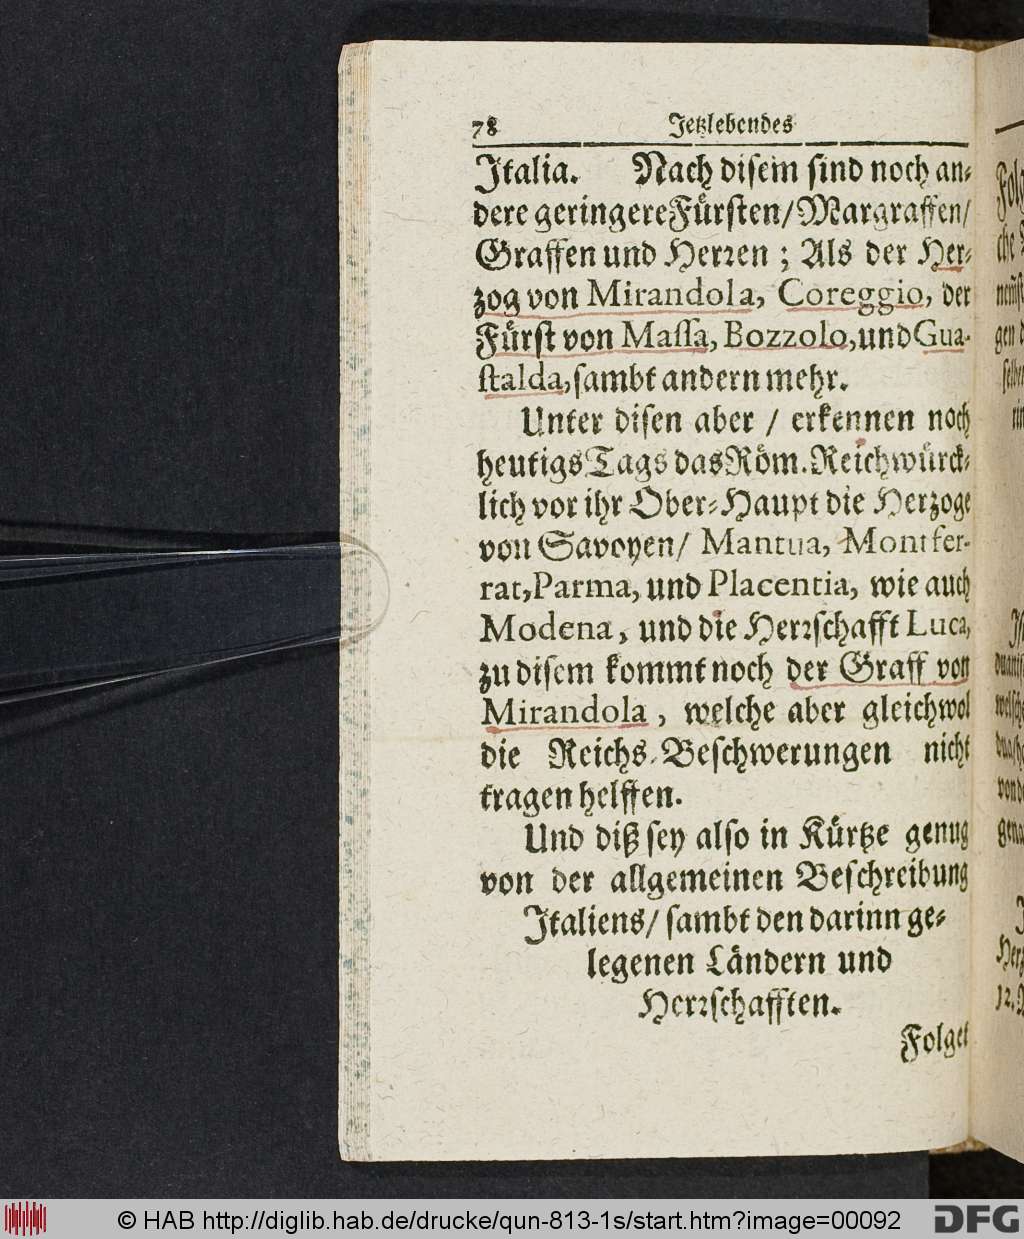 78 Jetzlebendes
Italia. Nach disem sind noch an-
dere geringere Fürsten/ Margraffen/
Graffen und Herren ; Als der Her-
zog von Mirandola, Coreggio, der
Fürst von Massa, Bozzolo, und Gua-
stalda, sambt andern mehr.
Unter disen aber / erkennen noch
heutigs Tags das Röm. Reich würck-
lich vor ihr Ober-Haupt die Herzoge
von Savoyen/ Mantua, Montfer-
rat, Parma, und Placentia, wie auch
Modena, und die Herrschafft Luca,
zu disem kommt noch der Graff von
Mirandola, welche aber gleichwol
die Reichs-Beschwerungen nicht
tragen helffen.
Und diß sey also in Kürtze genug
von der allgemeinen Beschreibung
Italiens/ sambt den darinn ge-
legenen Ländern und
Herrschafften.
Folget
© HAB http://diglib.hab.de/drucke/qun-813-1s/start.htm?image=00092
DFG